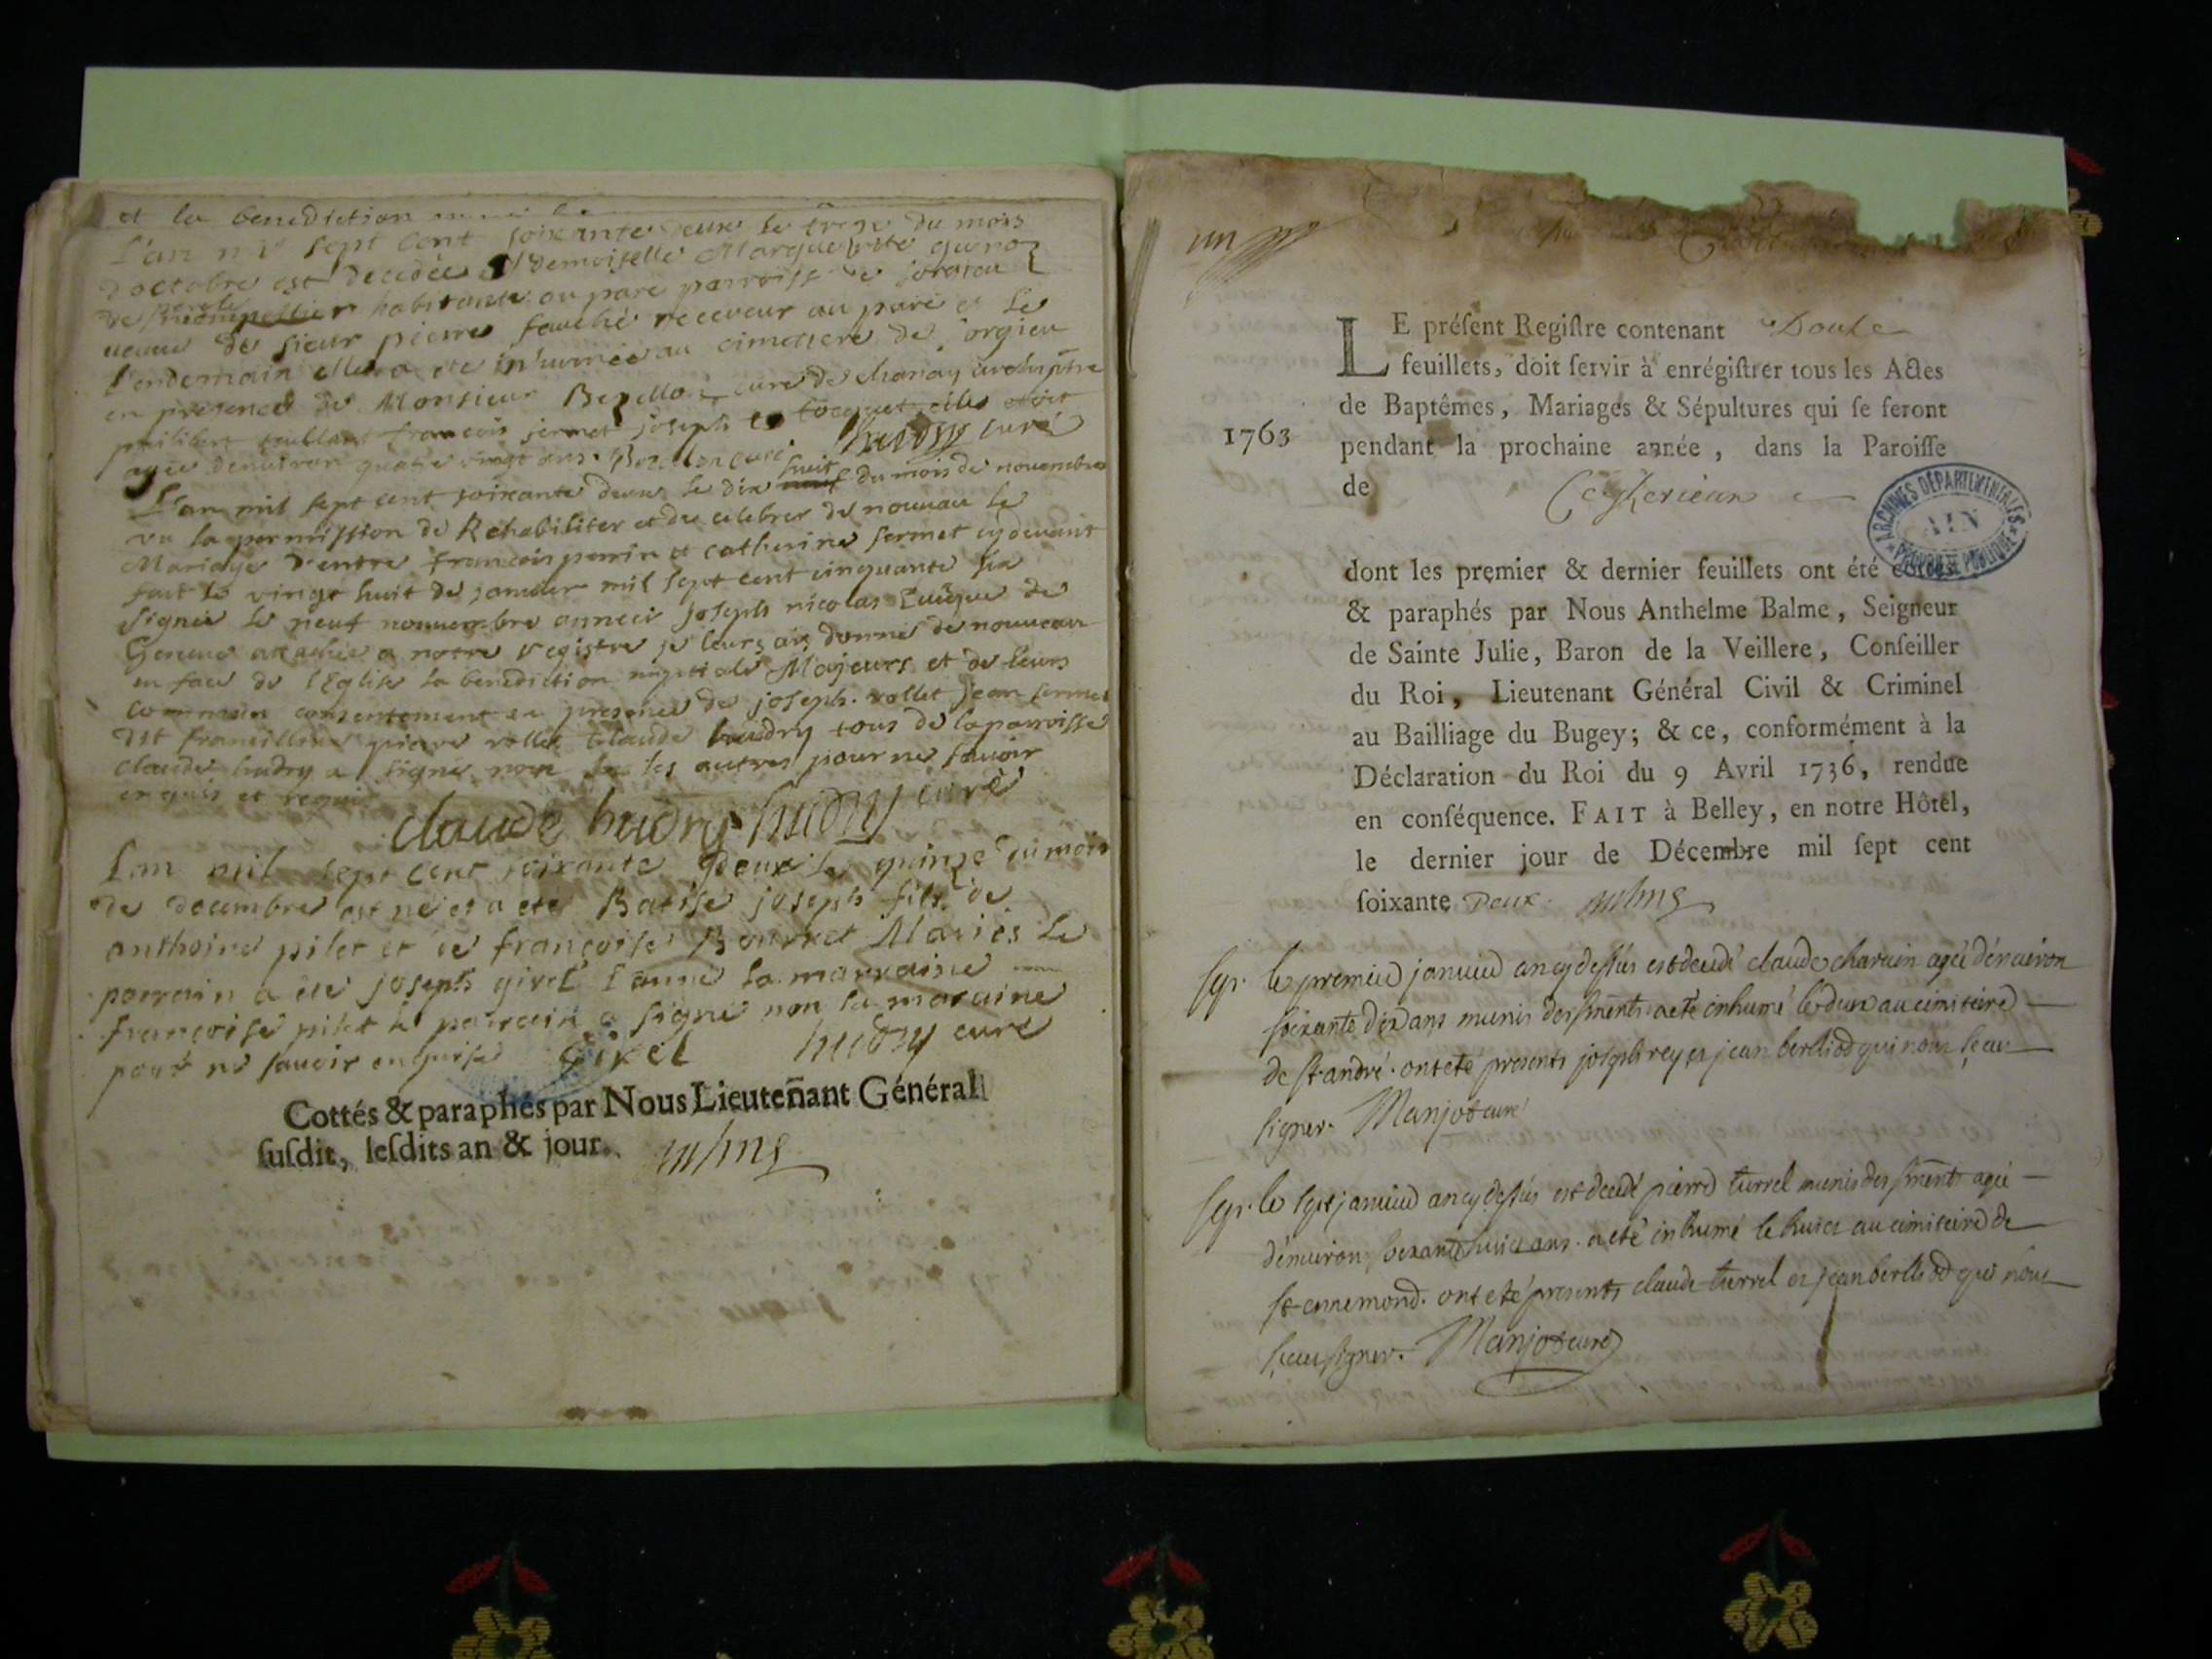 et la benediction
L'an mil sept cent soixante deux le treze du mois
d'octobre est decedée demoiselle Marguerite
de habitante au parc parroisse de
veuve de sieur pierre fauché receveur au parc et le
l'endemain elle a ete inhumée au cimetiere de jorgieu
en presence de Monsieur curé de
philibert françois joseph
agée d'environ quatre vingt ans. hudry curé
L'an mil sept cent soixante deux le dix huit du mois de novembre
vu la permission de Rehabiliter et de celebrer de nouveau le
Mariage d'entre francois perrin et catherine sermet cydevant
fait le vingt huit de janvier mil sept cent cinquante six
signée le neuf novembre joseph nicolas Eveque de
Geneve attachée a notre registre je leurs ais donné de nouveau
en face de l'Eglise la benediction nuptiale Majeurs et de leurs
commun consentement en presence de joseph rollet jean sermet
dit pierre rollet Claude hudry tous de la parroisse
claude hudry a signé non les autres pour ne savoir
enquis et requis
claude hudry hudry curé
L'an mil sept cent soixante deux le quinze du mois
de decembre est né et a eté Batisé joseph fils de
anthoine pilet et de françoise Bourret Mariés le
parrain a été joseph givel la marraine
françoise pilet le parrain a signé non la maraine
pour ne savoir enquise Givel hudry curé
Cottés & paraphés par Nous Lieuteñant Général
suſdit, leſdits an & jour.
un
LE préſent Regiſtre contenant Douze
feuillets, doit ſervir à enrégiſtrer tous les Actes
de Baptêmes, Mariages & Sépultures qui ſe feront
1763
pendant la prochaine année, dans la Paroiſſe
de Ceyzerieux
ARCHIVES DÉPARTEMENTALES
AIN
dont les premier & dernier feuillets ont été
& paraphés par Nous Anthelme Balme, Seigneur
de Sainte Julie, Baron de la Veillere, Conſeiller
du Roi, Lieutenant Général Civil & Criminel
au Bailliage du Bugey; & ce, conformément à la
Déclaration du Roi du 9 Avril 1736, rendue
en conſéquence. FAIT à Belley, en notre Hôtel,
le dernier jour de Décembre mil ſept cent
ſoixante Deux.
sep. le premier janvier an cy dessus est decedé claude charvin agé d'environ
soixante dix ans munis des sments a eté inhumé le deux au cimitiere
de st. andré. ont eté presents joseph rey et jean berlliod qui n'ont sceu
signer. Manjot curé
sep. le sept janvier an cy dessus est decedé pierre turrel munis des sments agé
d'environ soixante huict ans. a eté inhumé le huict au cimitiere de
st. ennemond. ont eté presents claude turrel et jean berlliod qui n'ont
sceu signer. Manjot curé